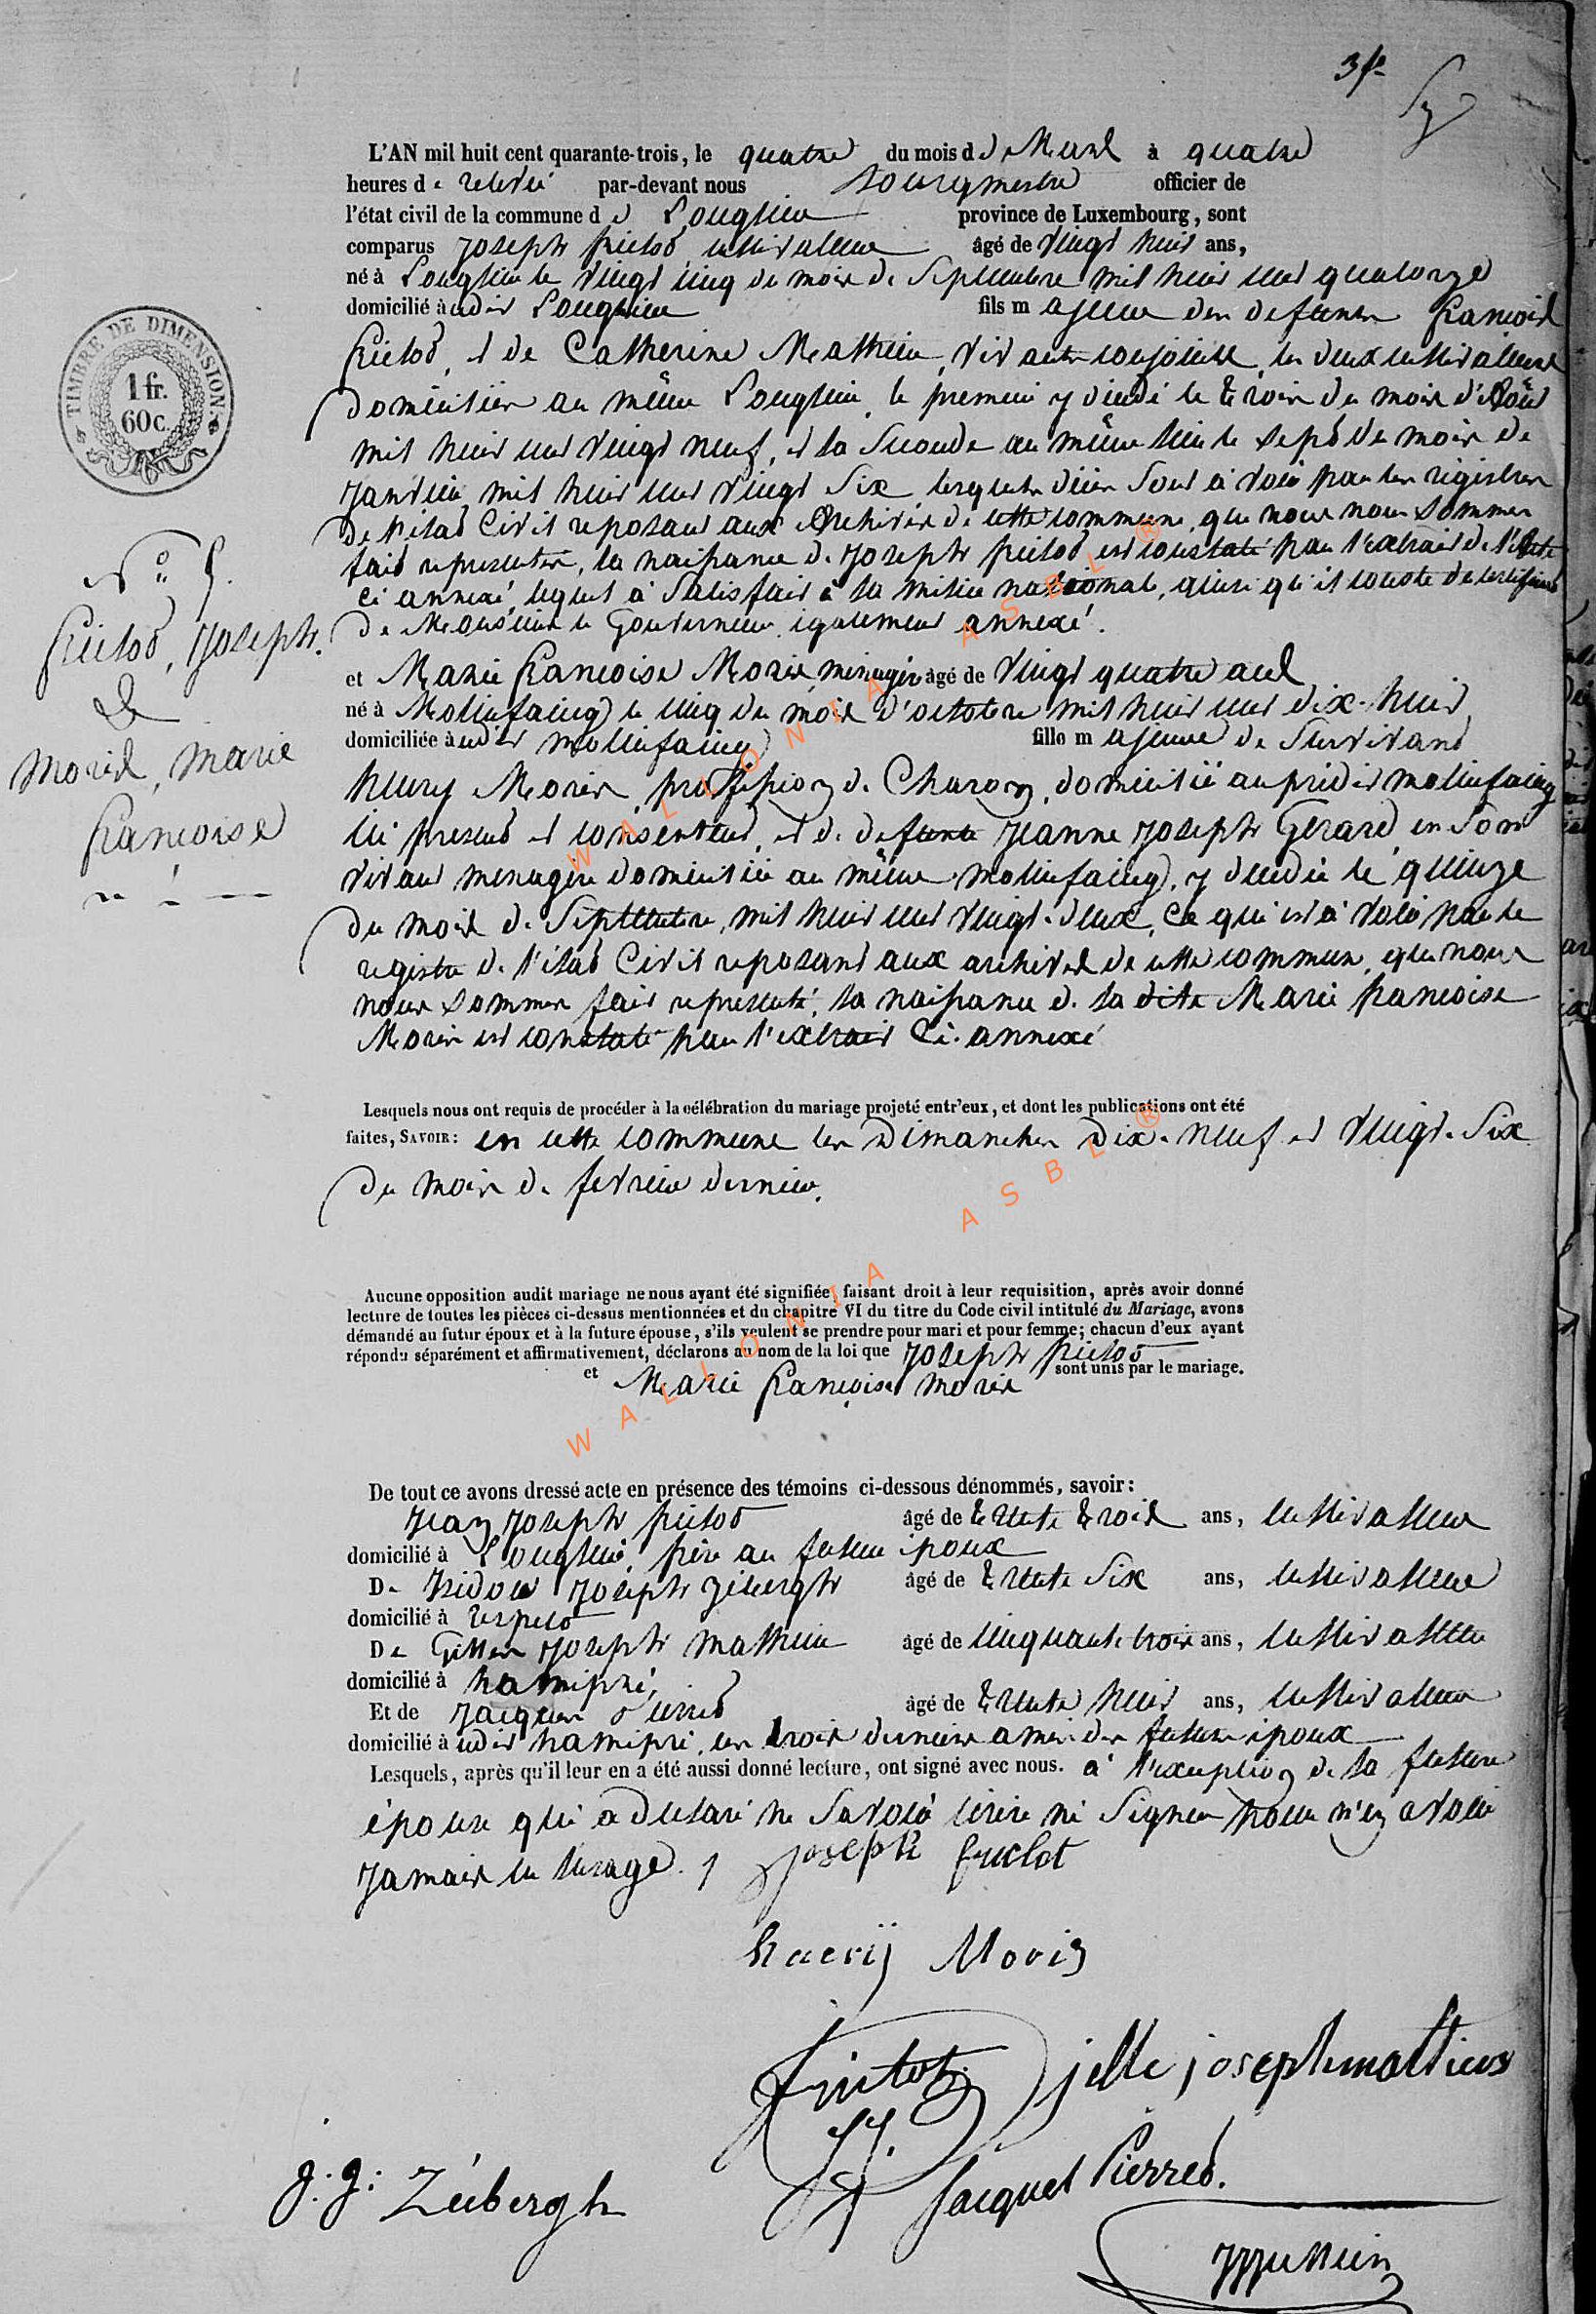 3 fe
L'AN mil huit cent quarante-trois, le quatre du mois de Mars à quatre
heures de relevé par-devant nous bourgmestre officier de
l'état civil de la commune de Longlier province de Luxembourg, sont
comparus Joseph Ficlot, cultivateur âgé de vingt huit ans,
né à Longlier le vingt cinq du mois de Septembre mil huit cent quatorze
domicilié à udit Longlier fils majeur des défunts François
Ficlot, et de Catherine Mathieu, vivants conjoints, les deux cultivateurs
domiciliés au même Longlier, le premier y décédé le trois du mois d'Août
mil huit cent vingt neuf, et la Seconde au même lieu le sept du mois de
Janvier mil huit cent vingt Six, lesquels décès sont à voir par les régistres
de l'état Civil reposant aux Archives de cette commune, que nous nous sommes
fait representer, la naissance de Joseph Ficlot est constaté par l'extrait de l'acte
ci annexé, lequel à Satisfait à la milice national, ainsi qu'il conste de certificat
de Monsieur le Gouverneur également annexé.
N° 5.
Ficlot, Joseph.
&
Moris, Marie
Françoise
et Marie Françoise Moris, ménagère âgé de vingt quatre ans
né à Molinfaing le cinq du mois d'octobre mil huit cent dix-huit
domiciliée à udit molinfaing fille majeure de Survivant
henry Moris, profession de Charon, domicilié au prédit molinfaing
ici present et consentant, et de defunte Jeanne Joseph Gerard, en son
vivant menagère domiciliée au même molinfaing, y décédée le quinze
du mois de Septembre, mil huit cent vingt-deux, Ce qui est à voir par le
registre de l'état Civil reposant aux archives de cette commune, que nous
nous sommes fait representé, la naissance de la dite Marie Françoise
Moris est constaté par l'extrait Ci-annexé
Lesquels nous ont requis de procéder à la célébration du mariage projeté entr'eux, et dont les publications ont été
faites, SAVOIR: en cette commune les Dimanches Dix-neuf et vingt-Six
du mois de fevrier dernier.
Aucune opposition audit mariage ne nous ayant été signifiée, faisant droit à leur requisition, après avoir donné
lecture de toutes les pièces ci-dessus mentionnées et du chapitre VI du titre du Code civil intitulé du Mariage, avons
démandé au futur époux et à la future épouse, s'ils veulent se prendre pour mari et pour femme; chacun d'eux ayant
répondu séparément et affirmativement, déclarons au nom de la loi que Joseph Ficlot
et Marie Françoise Moris sont unis par le mariage.
De tout ce avons dressé acte en présence des témoins ci-dessous dénommés, savoir:
Jean Joseph Ficlot âgé de trente trois ans, cultivateur
domicilié à Longlier, frère au futur époux
De Isidore Joseph Zébergh âgé de trente Six ans, cultivateur
domicilié à respelt
De Gilles Joseph Mathieu âgé de cinquante trois ans, cultivateur
domicilié à hamipré,
Et de Jacques Pierret âgé de trente huit ans, cultivateur
domicilié à udit hamipré, les trois derniers amis des futurs époux
Lesquels, après qu'il leur en a été aussi donné lecture, ont signé avec nous. à l'exception de la future
épouse qui a déclaré ne Savoir écrire ni Signer pour n'en avoir
Jamais eu l'usage.
Joseph Fiiclot
haerij Moris
jille joseph mattieus
J. J. Zeebergh
Jacques Pierret.
TIMBRE DE DIMENSION.
1 fr.
60 c.
WALLONIA ASBL ®
WALLONIA ASBL ®